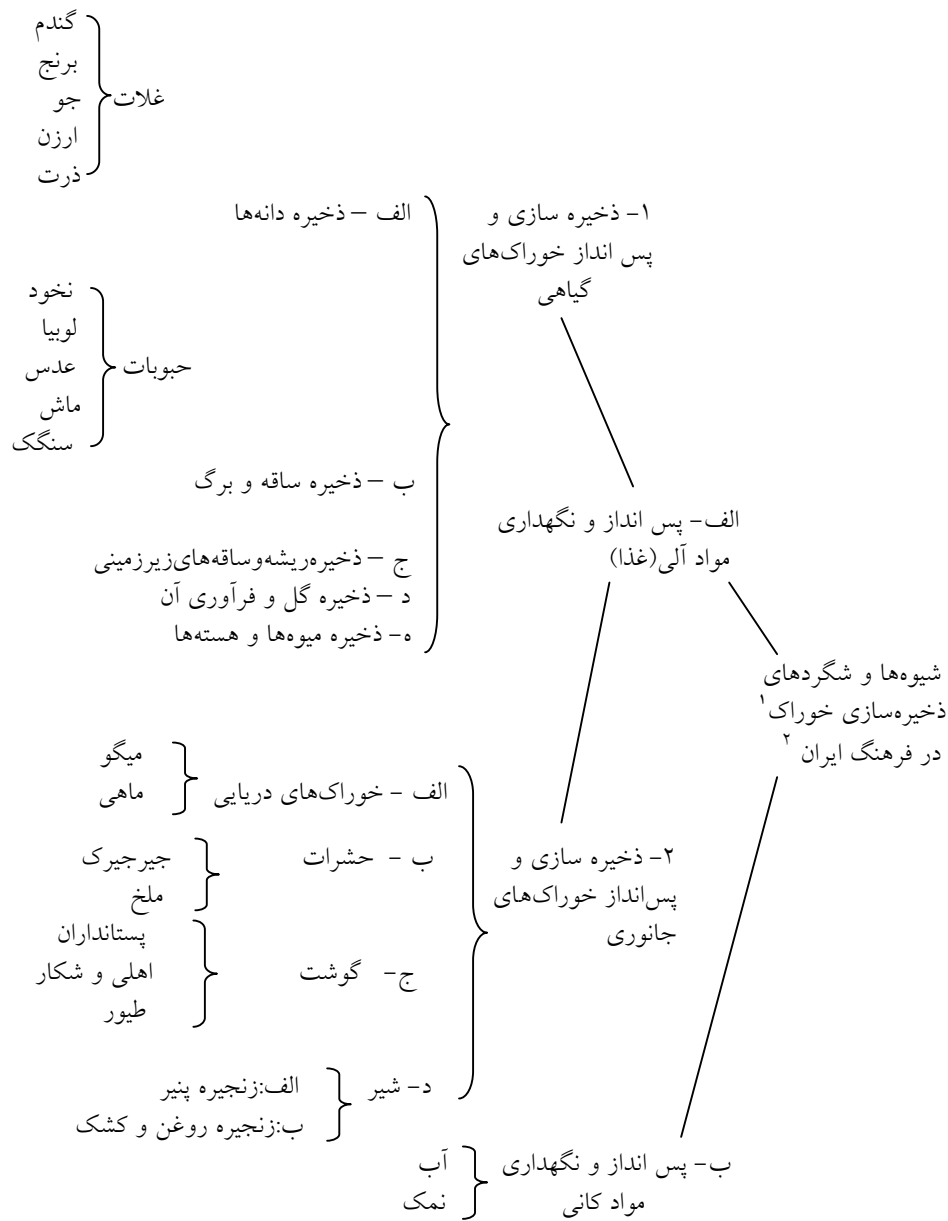 شیوه‌ها و شگردهای
ذخیره‌سازی خوراک۱
در فرهنگ ایران ۲
الف- پس انداز و نگهداری
مواد آلی(غذا)
۱- ذخیره سازی و
پس انداز خوراک‌های
گیاهی
الف – ذخیره دانه‌ها
غلات
گندم
برنج
جو
ارزن
ذرت
حبوبات
نخود
لوبیا
عدس
ماش
سنگک
ب – ذخیره ساقه و برگ
ج – ذخیره‌ریشه‌وساقه‌های‌زیرزمینی
د – ذخیره گل و فرآوری آن
ه- ذخیره میوه‌ها و هسته‌ها
۲- ذخیره سازی و
پس‌انداز خوراک‌های
جانوری
الف - خوراک‌های دریایی
میگو
ماهی
ب - حشرات
جیرجیرک
ملخ
ج- گوشت
پستانداران
اهلی و شکار
طیور
د- شیر
الف:زنجیره پنیر
ب:زنجیره روغن و کشک
ب- پس انداز و نگهداری
مواد کانی
آب
نمک